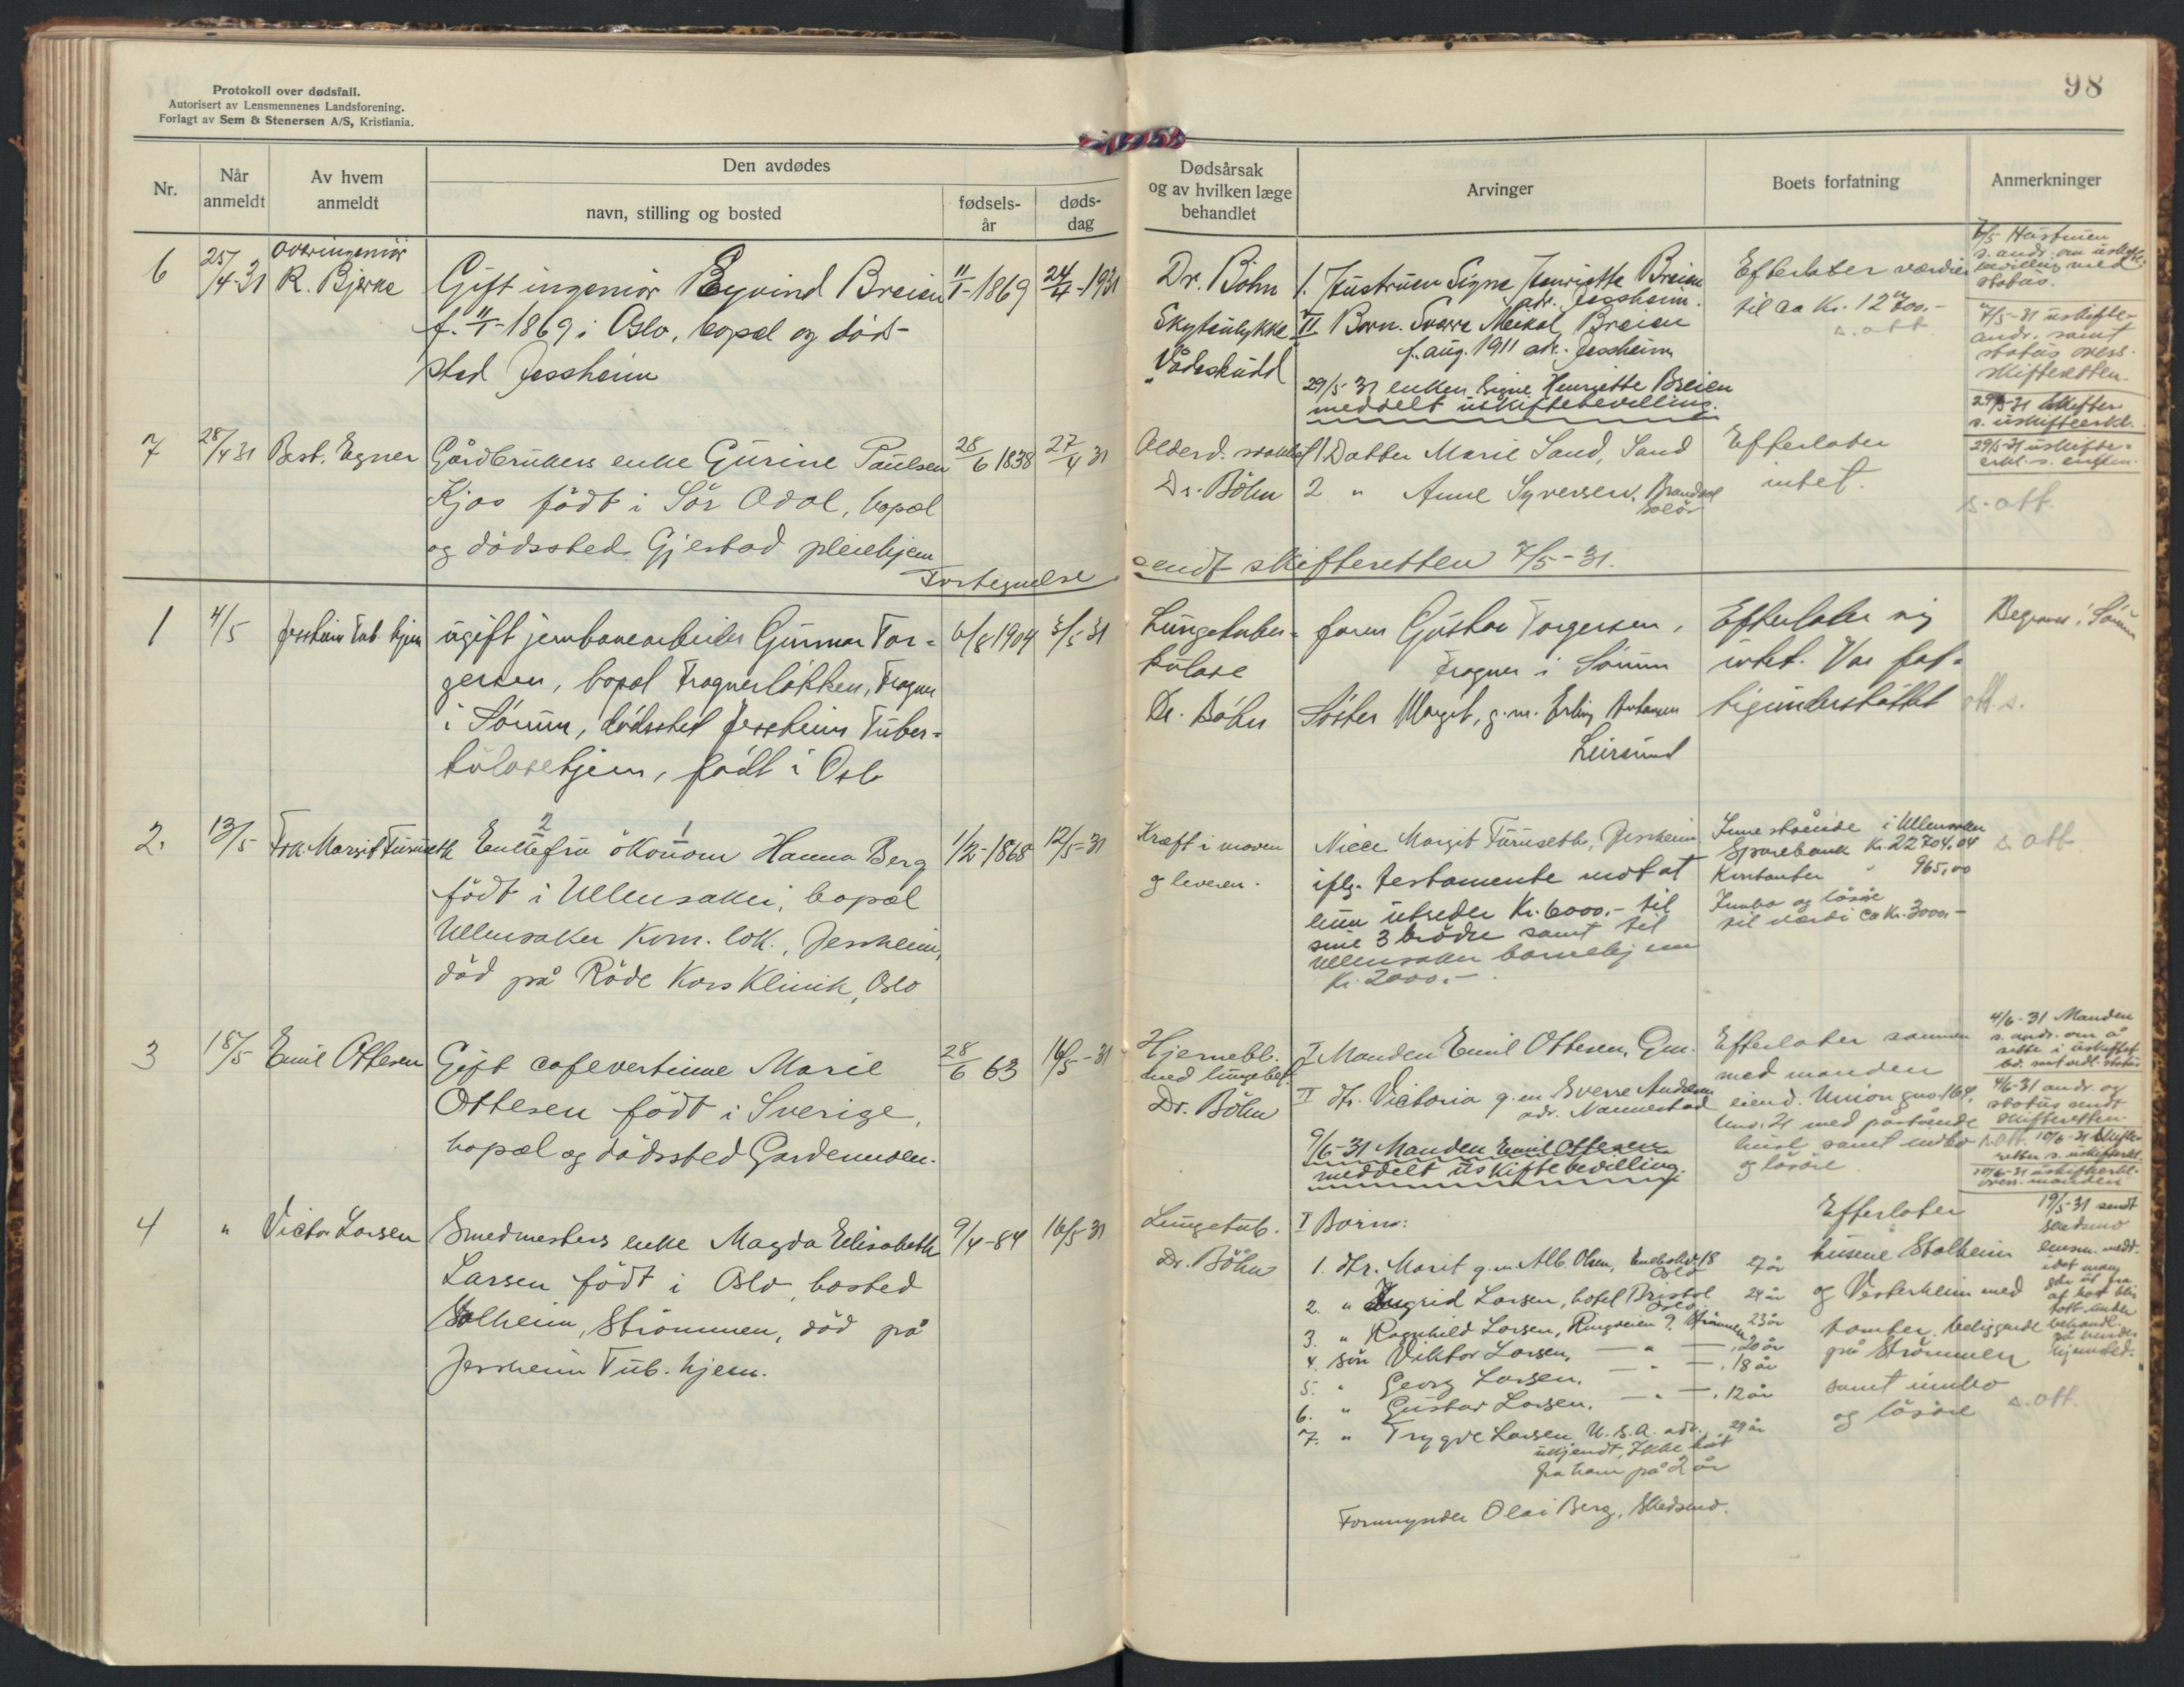 Protokoll over dødsfall.
Autorisert av Lensmennenes Landsforening.
Forlagt av Sem & Stenersen A/S, Kristiania.
98
Nr.
Når anmeldt
Av hvem anmeldt
Den avdødes
navn, stilling og bosted
fødsels-år
døds-dag
Dødsårsak og av hvilken læge behandlet
Arvinger
Boets forfatning
Anmerkninger
6
25/4-31
Overingeniør
R. Bjerke
Gift ingeniør Eyvind Breien
f. 11/1-1869 i Oslo, bopæl og död-
sted Jessheim
11/1-1869
24/4-1931
Dr. Böhn
Skytenlykke
"Vådeskudd
1. Hustruen Signe Henriette Breien
adr. Jessheim.
II Barn. Sverre Meikal Breien
f. aug. 1911 adr. Jessheim
29/5 31 enken Signe Henriette Breien
meddelt uskiftebevilling.
Efterlater værdier
til ca Kr. 12
s. att
7/5 Hustruen
s. andr. om uskifte-
bevilling med
status.
7/5-31 uskifte-
andr. samt
status overs.
skifteretten.
29/5-31 skifter.
s. uskifteerkl.
29/5-31 uskifte-
erkl. s. enken.
7
28/4 31
Best. Egner
Gårdbrukers enke Gurine Paulsen
Kjos född i Sör Odal, bopæl
og dödssted Gjestad pleiehjem
28/6 1838
27/4 31
Alderd. svakhet
Dr. Böhn
1. Datter Marie Sand, Sand
2 " Anne Syversen, Brandval
Solör
Efterlater
intet.
s. att.
Fortegnelse sendt skifteretten 7/5-31.
1
4/5
Jessheim Tub. hjem
ugift jernbanearbeider Gunnar Tor-
gersen, bopæl Frognerløkken, Frogner
i Sørum, dödssted Jessheim Tuber-
kulosehjem, född i Oslo
6/8 1904
3/5 31
Lungetuber-
kulose
Dr. Böhn
faren Gustav Torgersen,
Frogner i Sørum
Søster Margit, g.m. Erling Antonsen
Leirsund
Efterlater sig
intet. Var fat-
tigunderstöttet
Begraves i Sörum
att. s.
2.
13/5
Frk. Margit Furuseth
2 1
Enkefru ökonom Hanna Berg
född i Ullensaker, bopæl
Ullensaker Kom. lok., Jessheim,
död på Röde Kors Klinik, Oslo
1/2-1868
12/5-31
Kræft i maven
og leveren.
Niece Margit Furuseth, Jessheim
iflg. testamente mot at
hun utreder Kr. 6000.- til
sine 3 brödre samt til
Ullensaker barnehjem
Kr. 2000.-
Innestående i Ullensaker
Sparebank Kr. 22704,04
Kontanter " 965,00
Innbo og lösöre
til værdi ca Kr. 3000.-
s. att.
3
18/5
Emil Ottesen
Gift cafevertinne Marie
Ottesen född i Sverige,
bopæl og dödssted Gardermoen.
28/6 63
16/5-31
Hjernebl.
med lungebet.
Dr. Böhn
I Manden Emil Ottesen, Gm.
II dtr. Victoria g.m Sverre Andersen
adr. Nannestad
9/6-31 Manden Emil Ottesen
meddelt uskiftebevilling.
Efterlater sammen
med manden
eiend. Union gno. 164,
bno. 21 med påstående
hus samt indbo
og lösöre.
4/6-31 Manden
s. andr. om å
sitte i uskiftet
bo. samt vedl. status
4/6-31 andr. og
status sendt
skifteretten.
s. att. 10/6-31 skifte-
retten s. uskifteerkl.
10/6-31 uskifteerkl.
overs. manden
4
"
Victor Larsen
Smedmesters enke Magda Elisabeth
Larsen född i Oslo, bosted
Solheim, Strömmen, död på
Jessheim Tub. hjem.
9/4-84
16/5 31
Lungetub.
Dr. Böhn
I Barn:
1. dtr. Marit g.m. Alb. Olsen, 18
Oslo 27 år
2. " Ingrid Larsen, hotel Bristol
Oslo 24 år
3. " Ragnhild Larsen, Ringveien 9, Strömmen 23 år
4. sön Viktor Larsen, — " — , 20 år
5. " Georg Larsen, — " — , 18 år
6. " Gustav Larsen, — " — , 12 år
7. " Trygve Larsen U.S.A. adr. 29 år
ukjendt, Ikke hört
fra ham på 2 år
Formynder Olai Berg, Skedsmo.
Efterlater
husene Stalheim
og Vesterheim med
tomter beliggende
på Strömmen
samt innbo
og lösöre
19/5-31 sendt
Skedsmo
lensm. medd.
idet man
går ut fra
at bott blir
tatt under
behandl.
på hendes
hjemsted.
s. att.